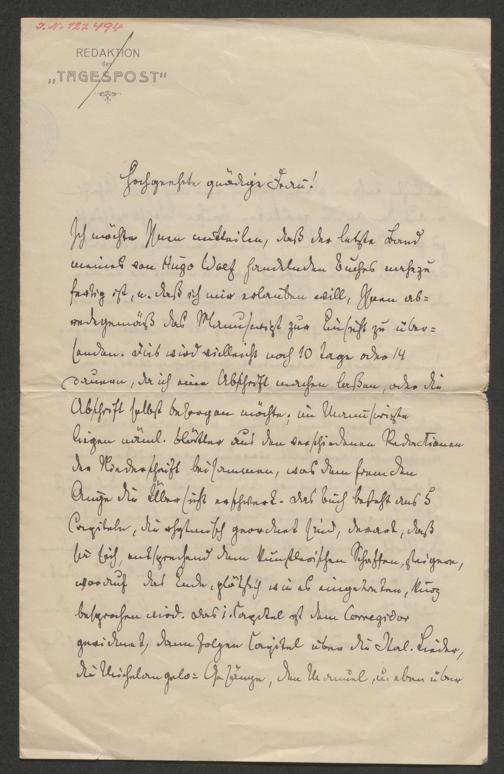 J. N. 122.494
REDAKTION
der
„TAGESPOST“
Hochgeehrte gnädige Frau!
Ich möchte Ihnen mitteilen, daß der letzte Band
meines von Hugo Wolf handelnden Buches nahezu
fertig ist, u. daß ich mir erlauben will, Ihnen ab=
redegemäß das Manuskript zur Einsicht zu über=
senden. Dies wird vielleicht noch 10 Tage oder 14
dauern, da ich eine Abschrift machen laßen, oder die
Abschrift selbst besorgen möchte; im Manuskripte
liegen näml. Blätter aus den verschiedenen Redactionen
der Niederschrift beisammen, was dem fremden
Auge die Übersicht erschwert. Das Buch besteht aus 5
Capiteln, die rhytmisch geordnet sind, derart, daß
sie sich, entsprechend dem künstlerischen Schaffen, steigern,
worauf das Ende, plötzlich wie es eingetreten, kurz
besprochen wird. Das 1. Capitel ist dem Corregidor
gewidmet, dann folgen Capitel über die Ital. Lieder,
die Michelangelo= Gesänge, den Manuel, u. eben über